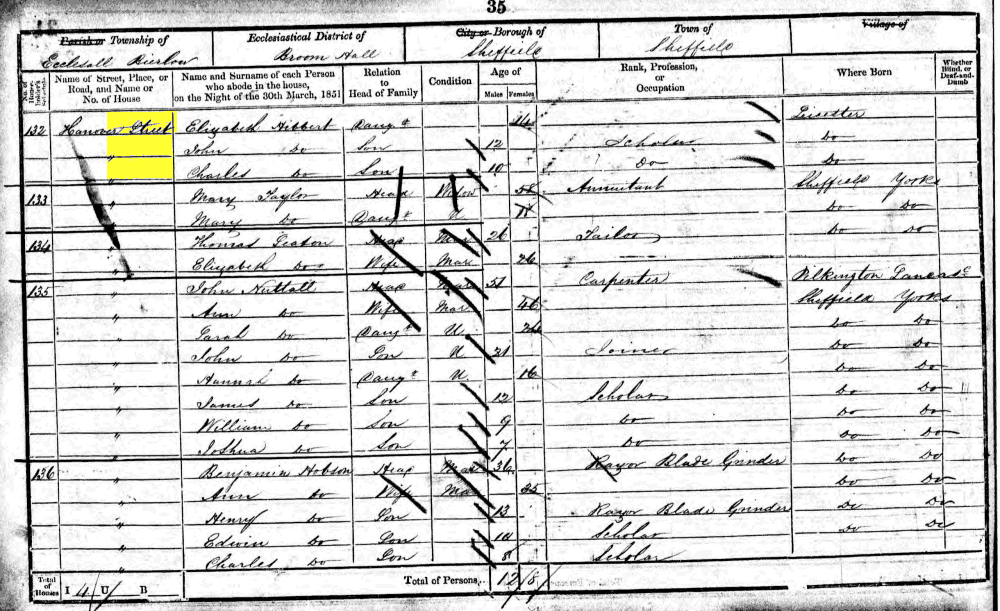 35
Parish or Township of Ecclesall Bierlow
Ecclesiastical District of Broom Hall
City or Borough of Sheffield
Town of Sheffield
Village of
No. of House-holder's Schedule
Name of Street, Place, or Road, and Name or No. of House
Name and Surname of each Person who abode in the house, on the Night of the 30th March, 1851
Relation to Head of Family
Condition
Age of
Males Females
Rank, Profession, or Occupation
Where Born
Whether Blind, or Deaf-and-Dumb
132 Hanover Street Elizabeth Hibbert Daugr 14 Leicester
" John Do Son 12 Scholar Do
" Charles Do Son 10 Do Do
133 " Mary Taylor Head Widow Annuitant Sheffield Yorks
" Mary Do Daugr U Do Do
134 " Thomas Head Mar 26 Tailor Do Do
" Elizabeth Do Wife Mar 26 Do Do
135 " John Nuttall Head Mar 51 Carpenter Pilkington
" Ann Do Wife Mar 46 Sheffield Yorks
" Sarah Do Daugr U 24 Do Do
" John Do Son U 21 Joiner Do Do
" Hannah Do Daugr U 16 Do Do
" James Do Son 12 Scholar Do Do
" William Do Son 9 Do Do Do
" Joshua Do Son 7 Do Do Do
136 " Benjamin Hobson Head Mar 36 Razor Blade Grinder Do Do
" Ann Do Wife Mar 35 Do Do
" Henry Do Son 13 Razor Blade Grinder Do Do
" Edwin Do Son 10 Scholar Do Do
" Charles Do Son 8 Scholar
Total of Houses I 4 U B Total of Persons 12 8